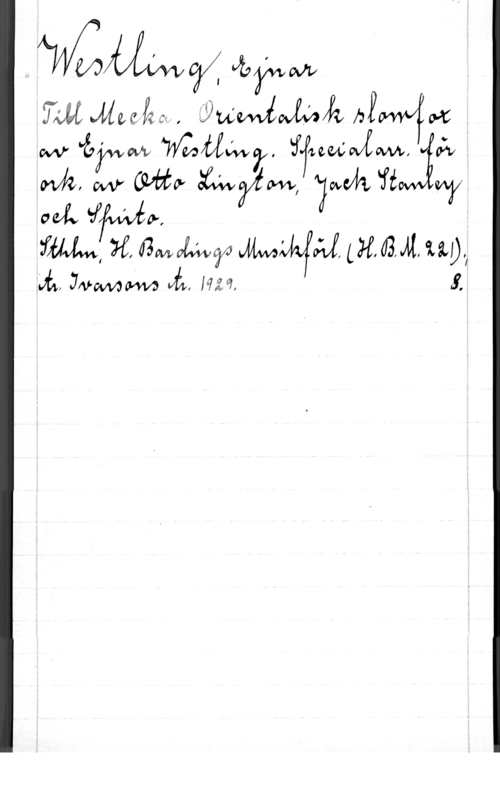 Westling, Ejnar
Till Mecka. Orientalisk slowfox
av Ejnar Westling. Specialarr. för
ork. av Otto Lington, Jack Stanley
och Spirto.
Sthlm, H. Bardings Musikförl. (H.B.M. 221);
tr. Ivarsons tr. 1929. 8.